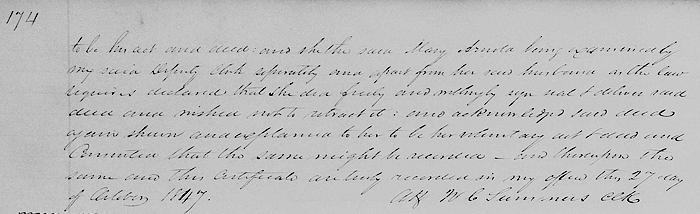 174
to be her act and deed: and she the said Mary Arnold being examined by
my said Deputy Clerk seperately and apart from her said husband as the law
requires declared that she did freely and willingly sign seal & deliver said
deed and wished not to retract it: and acknowledged said deed
again shewn and explained to her to be her voluntary act & deed and
Consented that the same might be recorded — and thereupon the
same and this Certificate are truly recorded in my office this 27 day
of October 1847. Att W C Summers Clk